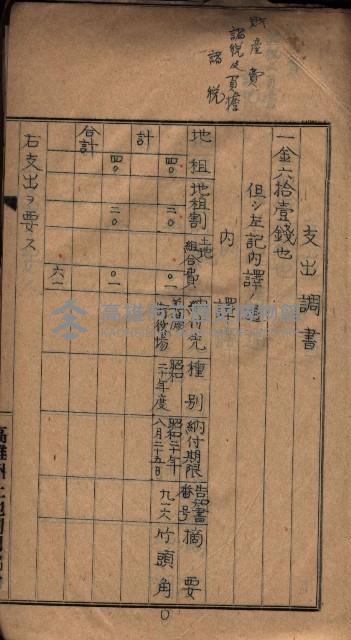 財産費
諸税及負擔
諸税
支出調書
一金六拾壹錢也
但シ左記内譯
内譯
地租
地租割
土地組合費
納付先
種別
納付期限
告知書番号
摘要
四〇
二〇
〇一
街役場
昭和二十年度
昭和二十年八月二十五日
九一六
竹頭角
計
四〇
二〇
〇一
合計
六一
右支出ヲ要ス
高雄州
高雄市立歷史博物館